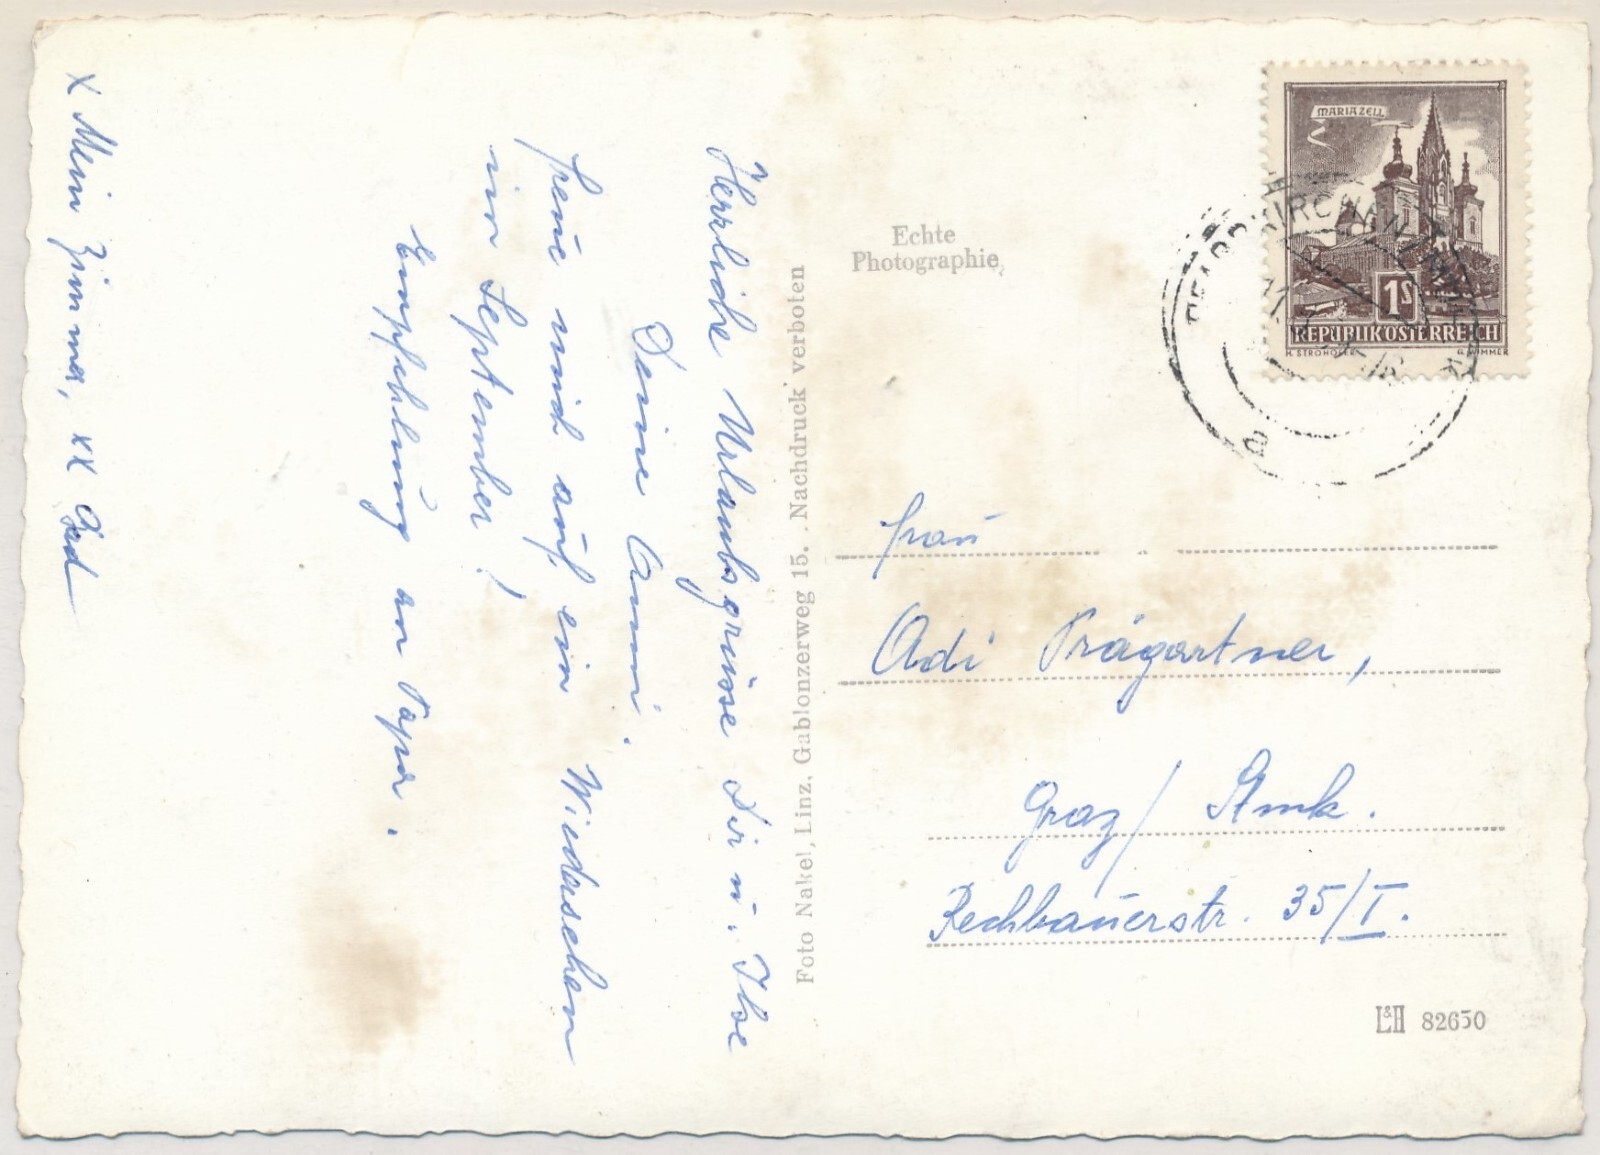 x Mein Zimmer, xx Bad
Herzliche Urlaubsgrüsse Dir u. Ilse
Deine Anni.
freue mich auf ein Wiedersehen
im September!
Empfehlung an Papa.
Foto Nakel, Linz, Gablonzerweg 15. . Nachdruck verboten
Echte
Photographie
MARIAZELL
1S
REPUBLIK ÖSTERREICH
H. STROHOFER G. WIMMER
a
Frau
Adi Prägartner,
Graz / Stmk.
Rechbauerstr. 35/I.
L&H 82650